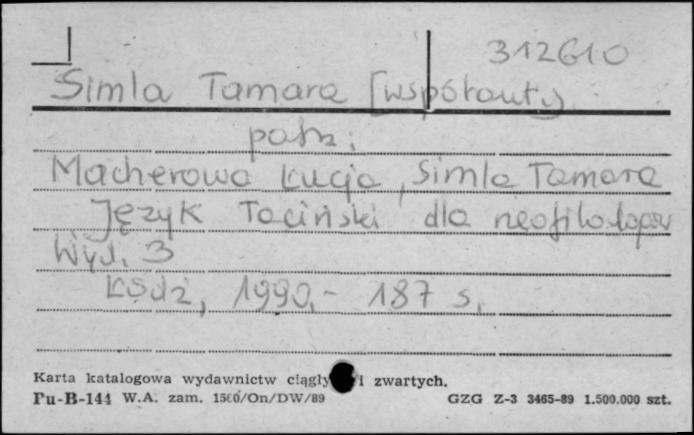 312610
Simla Tamara [współauty
patrz:
Macherowa Łucja, Simla Tamara
Język łaciński dla neofilologów
Wyd. 3
Łódź, 1990.- 187 s.
Karta katalogowa wydawnictw ciągły i zwartych.
Pu-B-144 W.A. zam. 1560/On/DW/89 GZG Z-3 3465-89 1.500.000 szt.